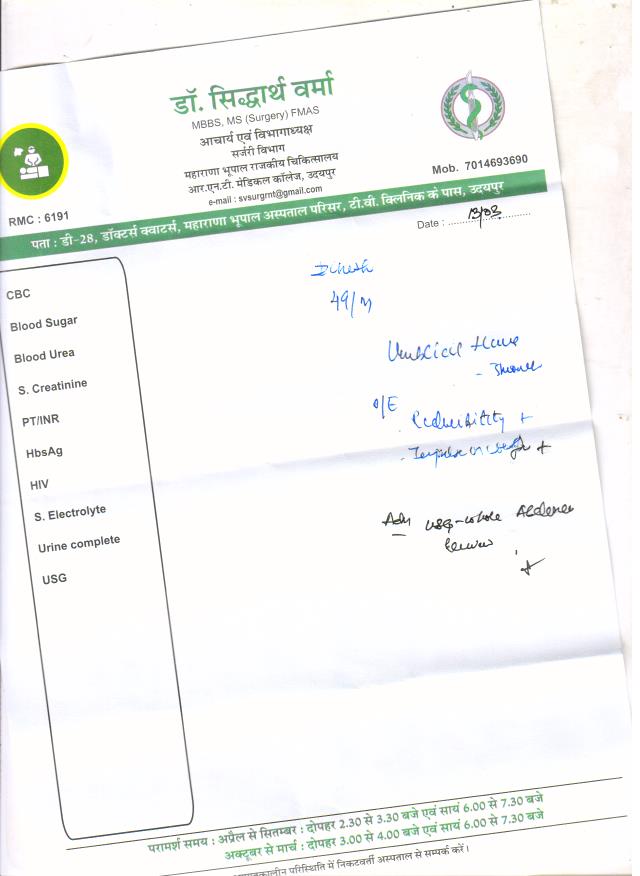 डॉ. सिद्धार्थ वर्मा
MBBS, MS (Surgery) FMAS
आचार्य एवं विभागाध्यक्ष
सर्जरी विभाग
महाराणा भूपाल राजकीय चिकित्सालय
आर.एन.टी. मेडिकल कॉलेज, उदयपुर
e-mail : svsurgrnt@gmail.com
RMC : 6191
Mob. 7014693690
पता : डी-28, डॉक्टर्स क्वाटर्स, महाराणा भूपाल अस्पताल परिसर, टी.बी. क्लिनिक के पास, उदयपुर
Date : 13/03
Dinesh
49/M
CBC
Blood Sugar
Blood Urea
S. Creatinine
PT/INR
HbsAg
HIV
S. Electrolyte
Urine complete
USG
O/E
Reducibility +
Impulse on cough +
Adv USG-whole Abdomen
परामर्श समय : अप्रैल से सितम्बर : दोपहर 2.30 से 3.30 बजे एवं सायं 6.00 से 7.30 बजे
अक्टूबर से मार्च : दोपहर 3.00 से 4.00 बजे एवं सायं 6.00 से 7.30 बजे
परिस्थिति में निकटवर्ती अस्पताल से सम्पर्क करें।